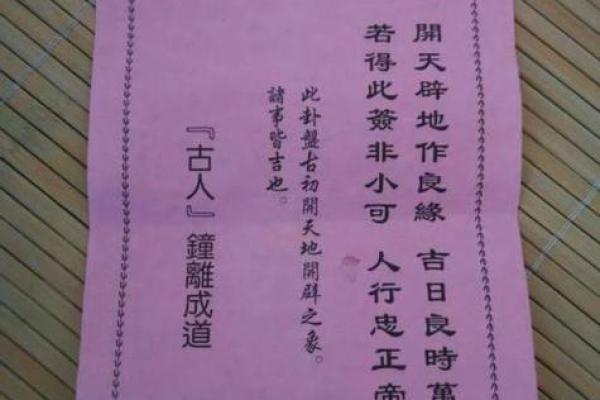 開天辟地作良緣 吉日良時萬
若得此簽非小可 人行忠正帝
此卦盤古初開天地開辟之象。
諸事皆吉也。
『古人』 鐘離成道